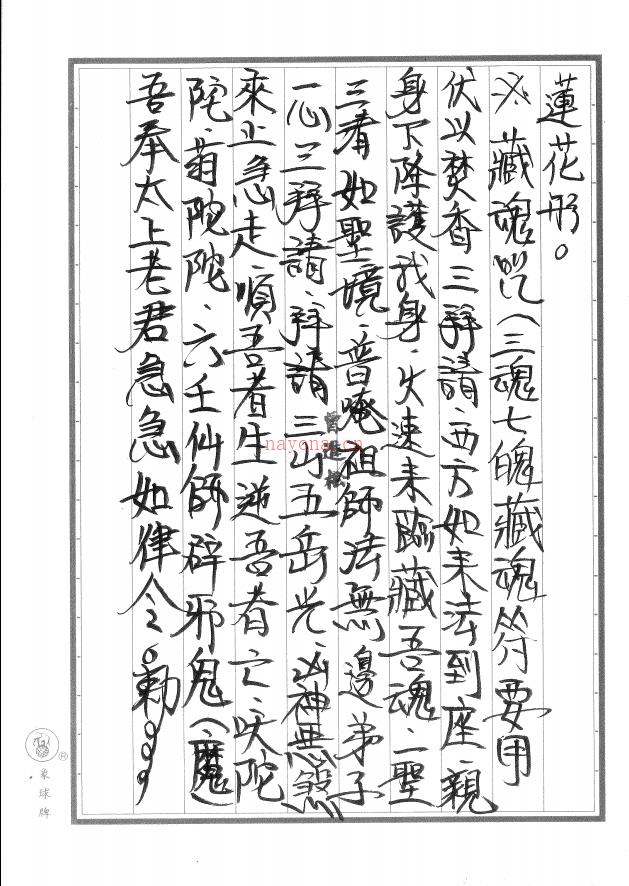 蓮花形。
※藏魂咒（三魂七魄藏魂符要用
伏以焚香三拜請、西方如来法到座、親
身下降護我身、火速来臨藏吾魂、一聖
三看如聖境、普唵祖師法無邊弟子
一心三拜請、拜請三山五岳光、凶神惡煞
來止急走、順吾者生逆吾者亡、吠陀
陀、翁陀陀、六壬仙師辟邪鬼（魔）
吾奉太上老君急急如律令。勅。。。
nayona.cn
象球牌